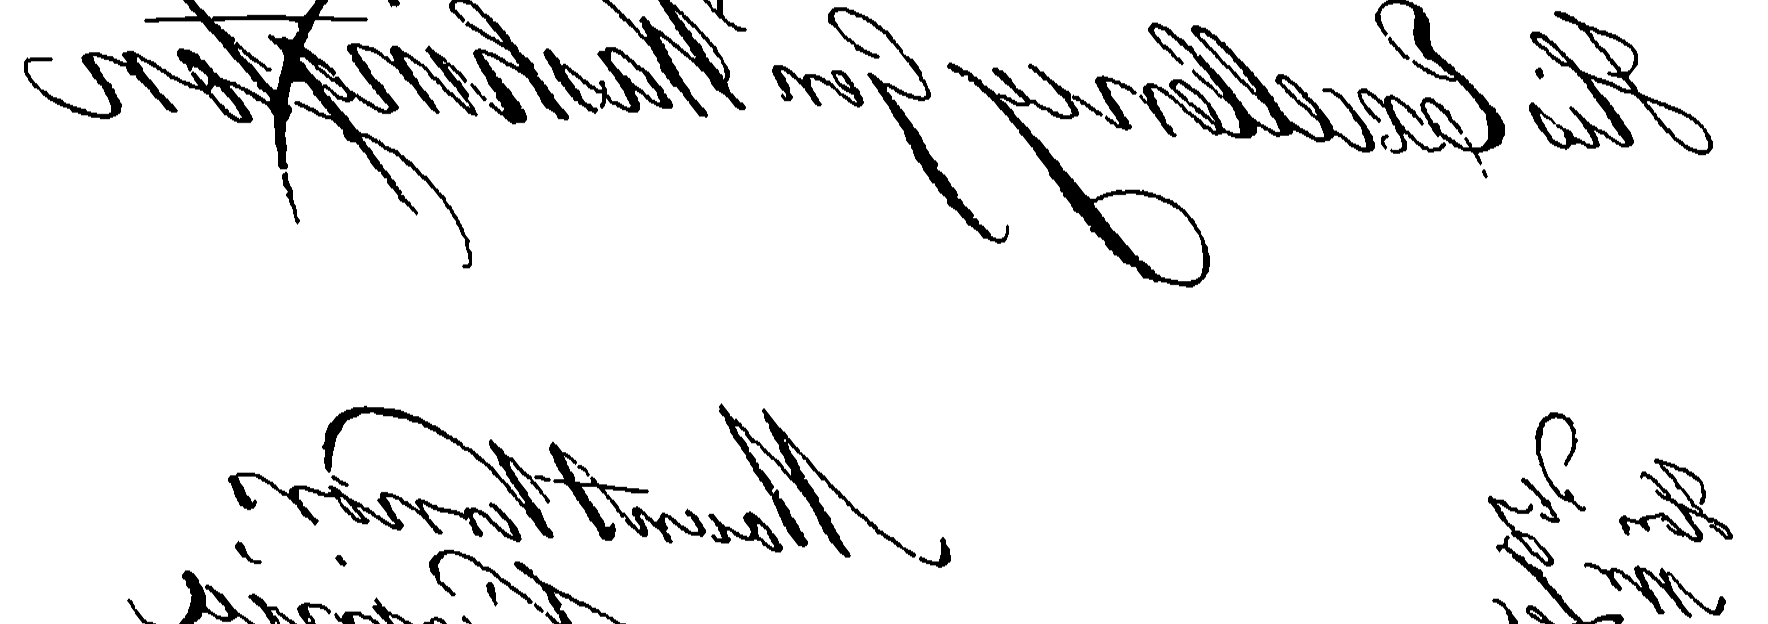 His Excellency Gen Washington
Mount Vernon
Virginia